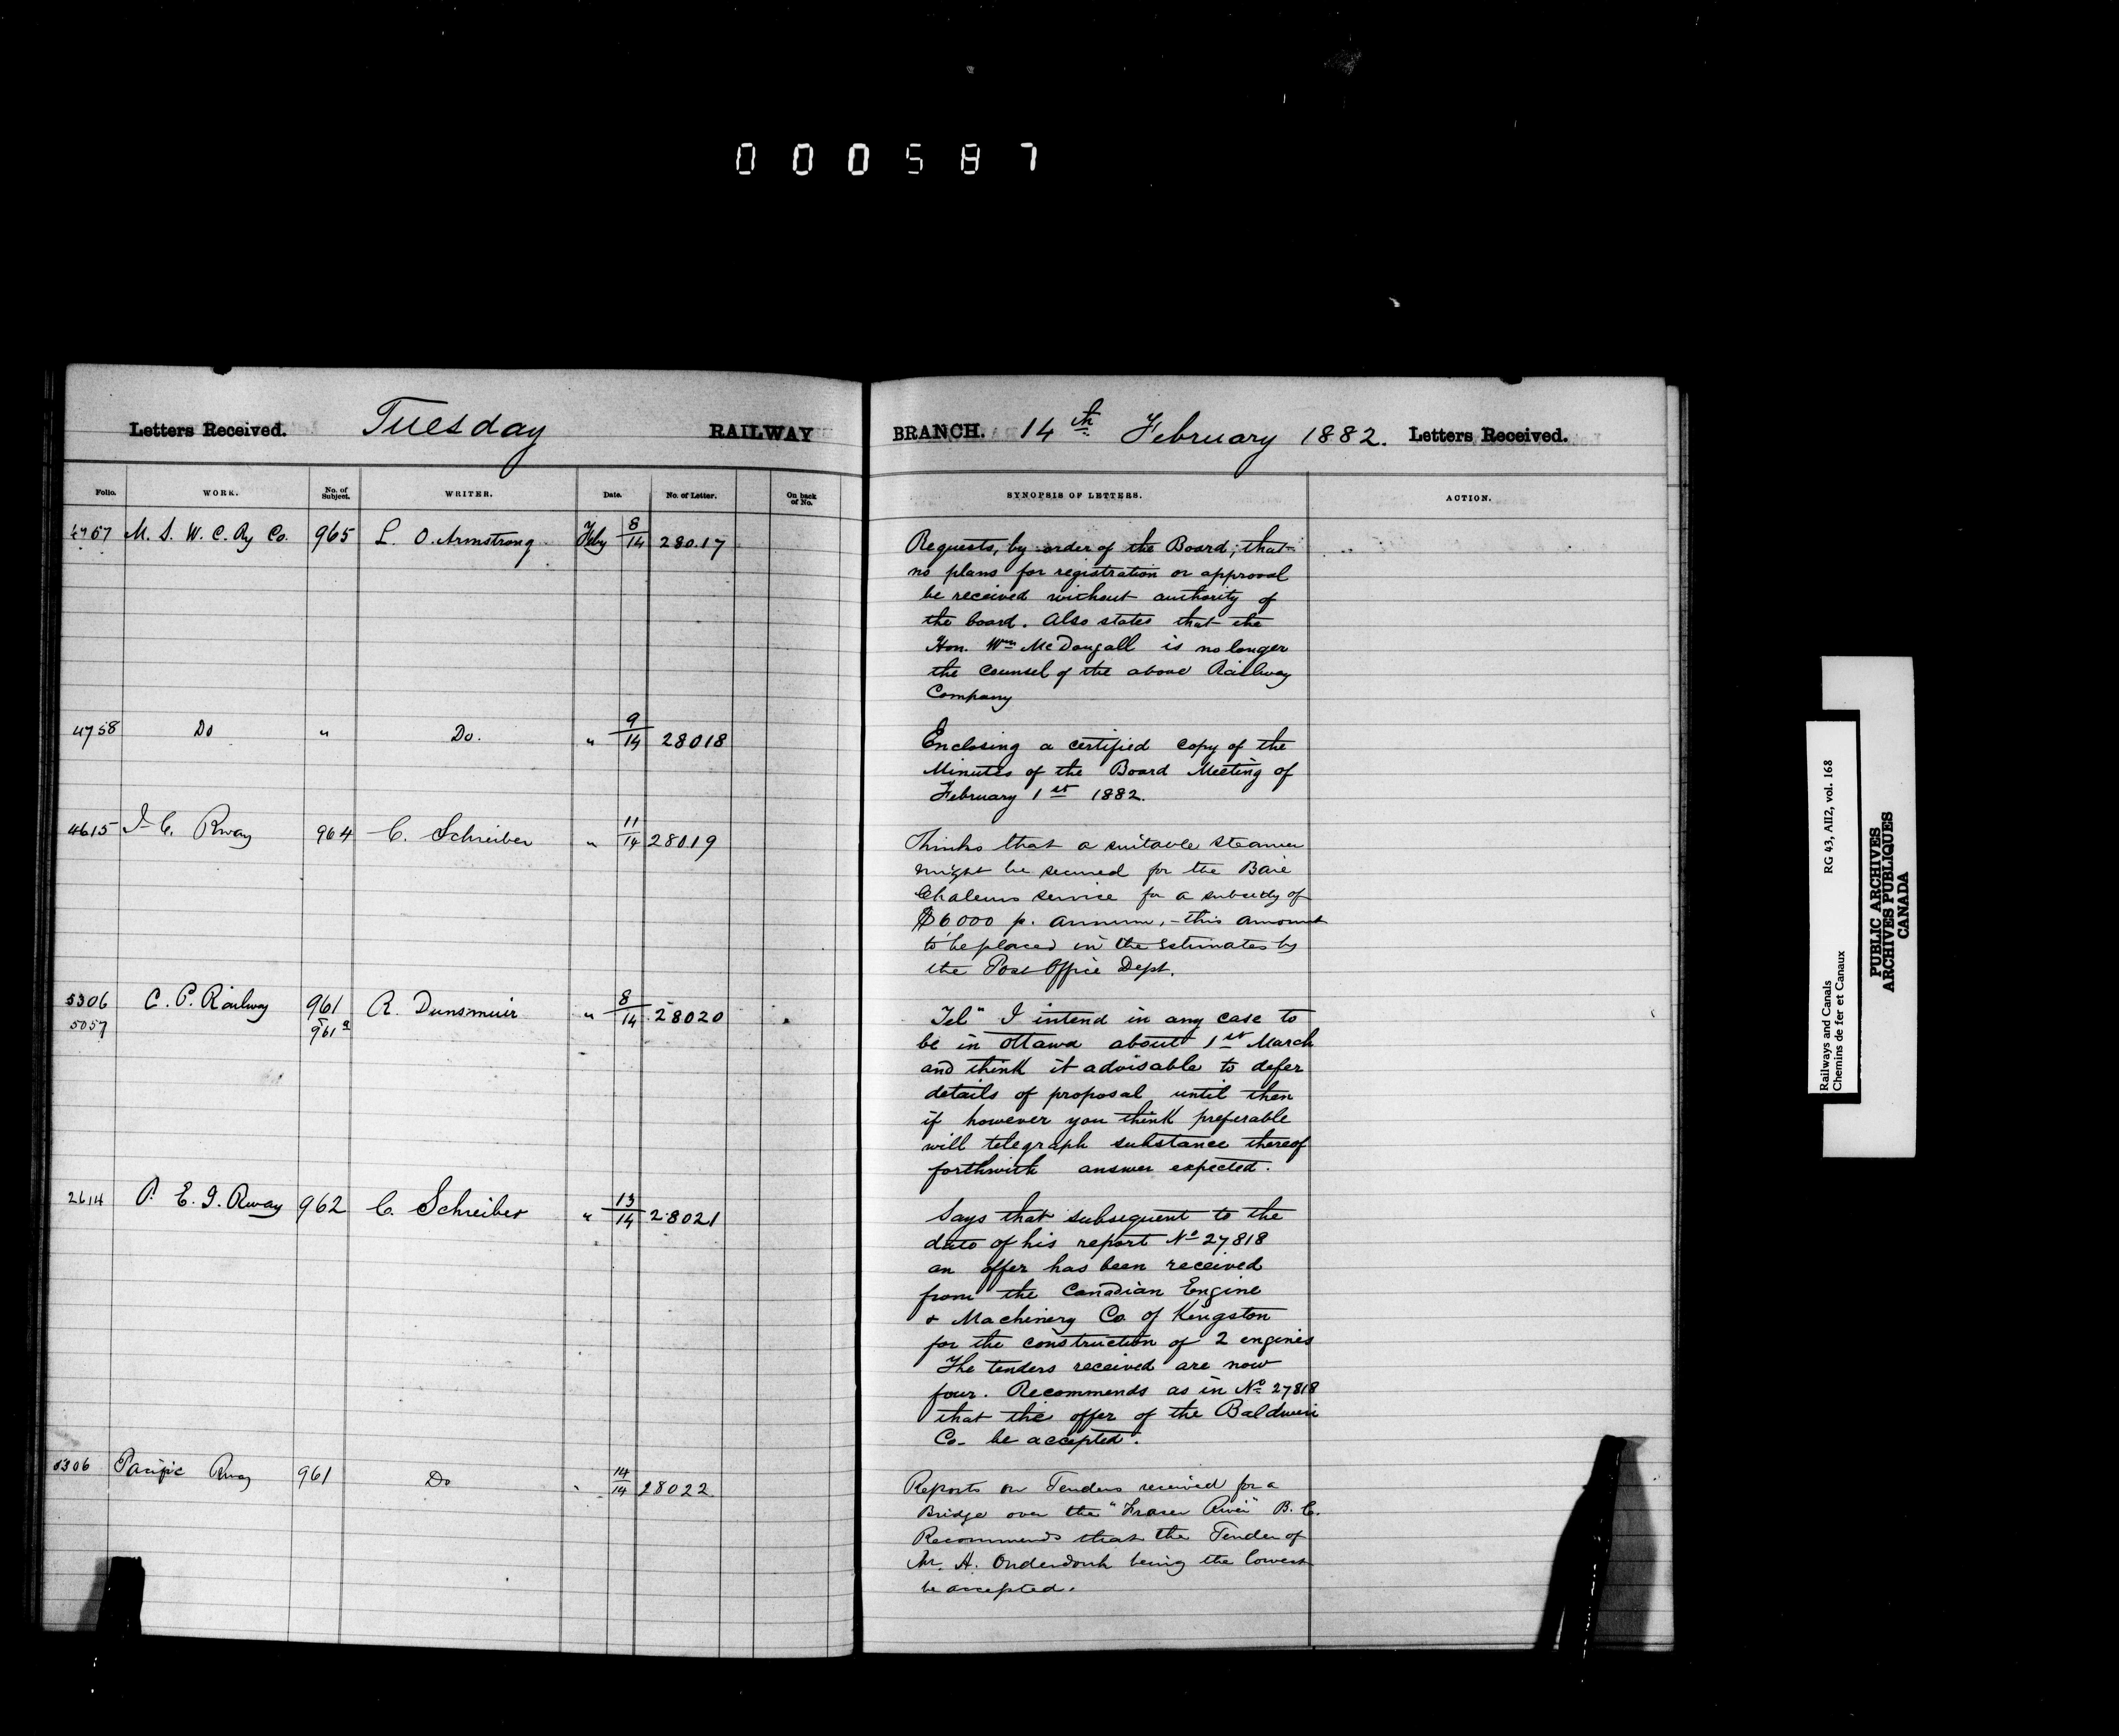 000587
Letters Received. Tuesday RAILWAY BRANCH. 14th February 1882. Letters Received.
Folio. WORK. No. of Subject. WRITER. Date. No. of Letter. On back of No. SYNOPSIS OF LETTERS. ACTION.
4757 M. S. W. C. Ry Co. 965 L. O. Armstrong Feby 8/14 28017
Requests, by order of the Board, that
no plans for registration or approval
be received without authority of
the board. Also states that the
Hon. Wm McDougall is no longer
the counsel of the above Railway
Company
4758 Do " Do. " 9/14 28018
Enclosing a certified copy of the
Minutes of the Board Meeting of
February 1st 1882.
4615 I. C. Rway 964 C. Schreiber " 11/14 28019
Thinks that a suitable steamer
might be secured for the Baie
Chaleurs service for a subsidy of
$6000 p. annum, - this amount
to be placed in the Estimates by
the Post Office Dept.
5306 C. P. Railway 961 R. Dunsmuir " 8/14 28020
5057 961a
Tel" I intend in any case to
be in Ottawa about 1st March
and think it advisable to defer
details of proposal until then
if however you think preferable
will telegraph substance thereof
forthwith answer expected.
2614 P. E. I. Rway 962 C. Schreiber " 13/14 28021
Says that subsequent to the
date of his report No 27818
an offer has been received
from the Canadian Engine
& Machinery Co of Kingston
for the construction of 2 engines
The tenders received are now
four. Recommends as in No 27818
that the offer of the Baldwin
Co. be accepted.
5306 Pacific Rway 961 Do " 14/14 28022
Reports on Tenders received for a
Bridge over the "Fraser River" B. C.
Recommends that the Tender of
Mr. A. Onderdonk being the lowest
be accepted.
Railways and Canals RG 43, A112, vol. 168
Chemins de fer et Canaux
PUBLIC ARCHIVES
ARCHIVES PUBLIQUES
CANADA